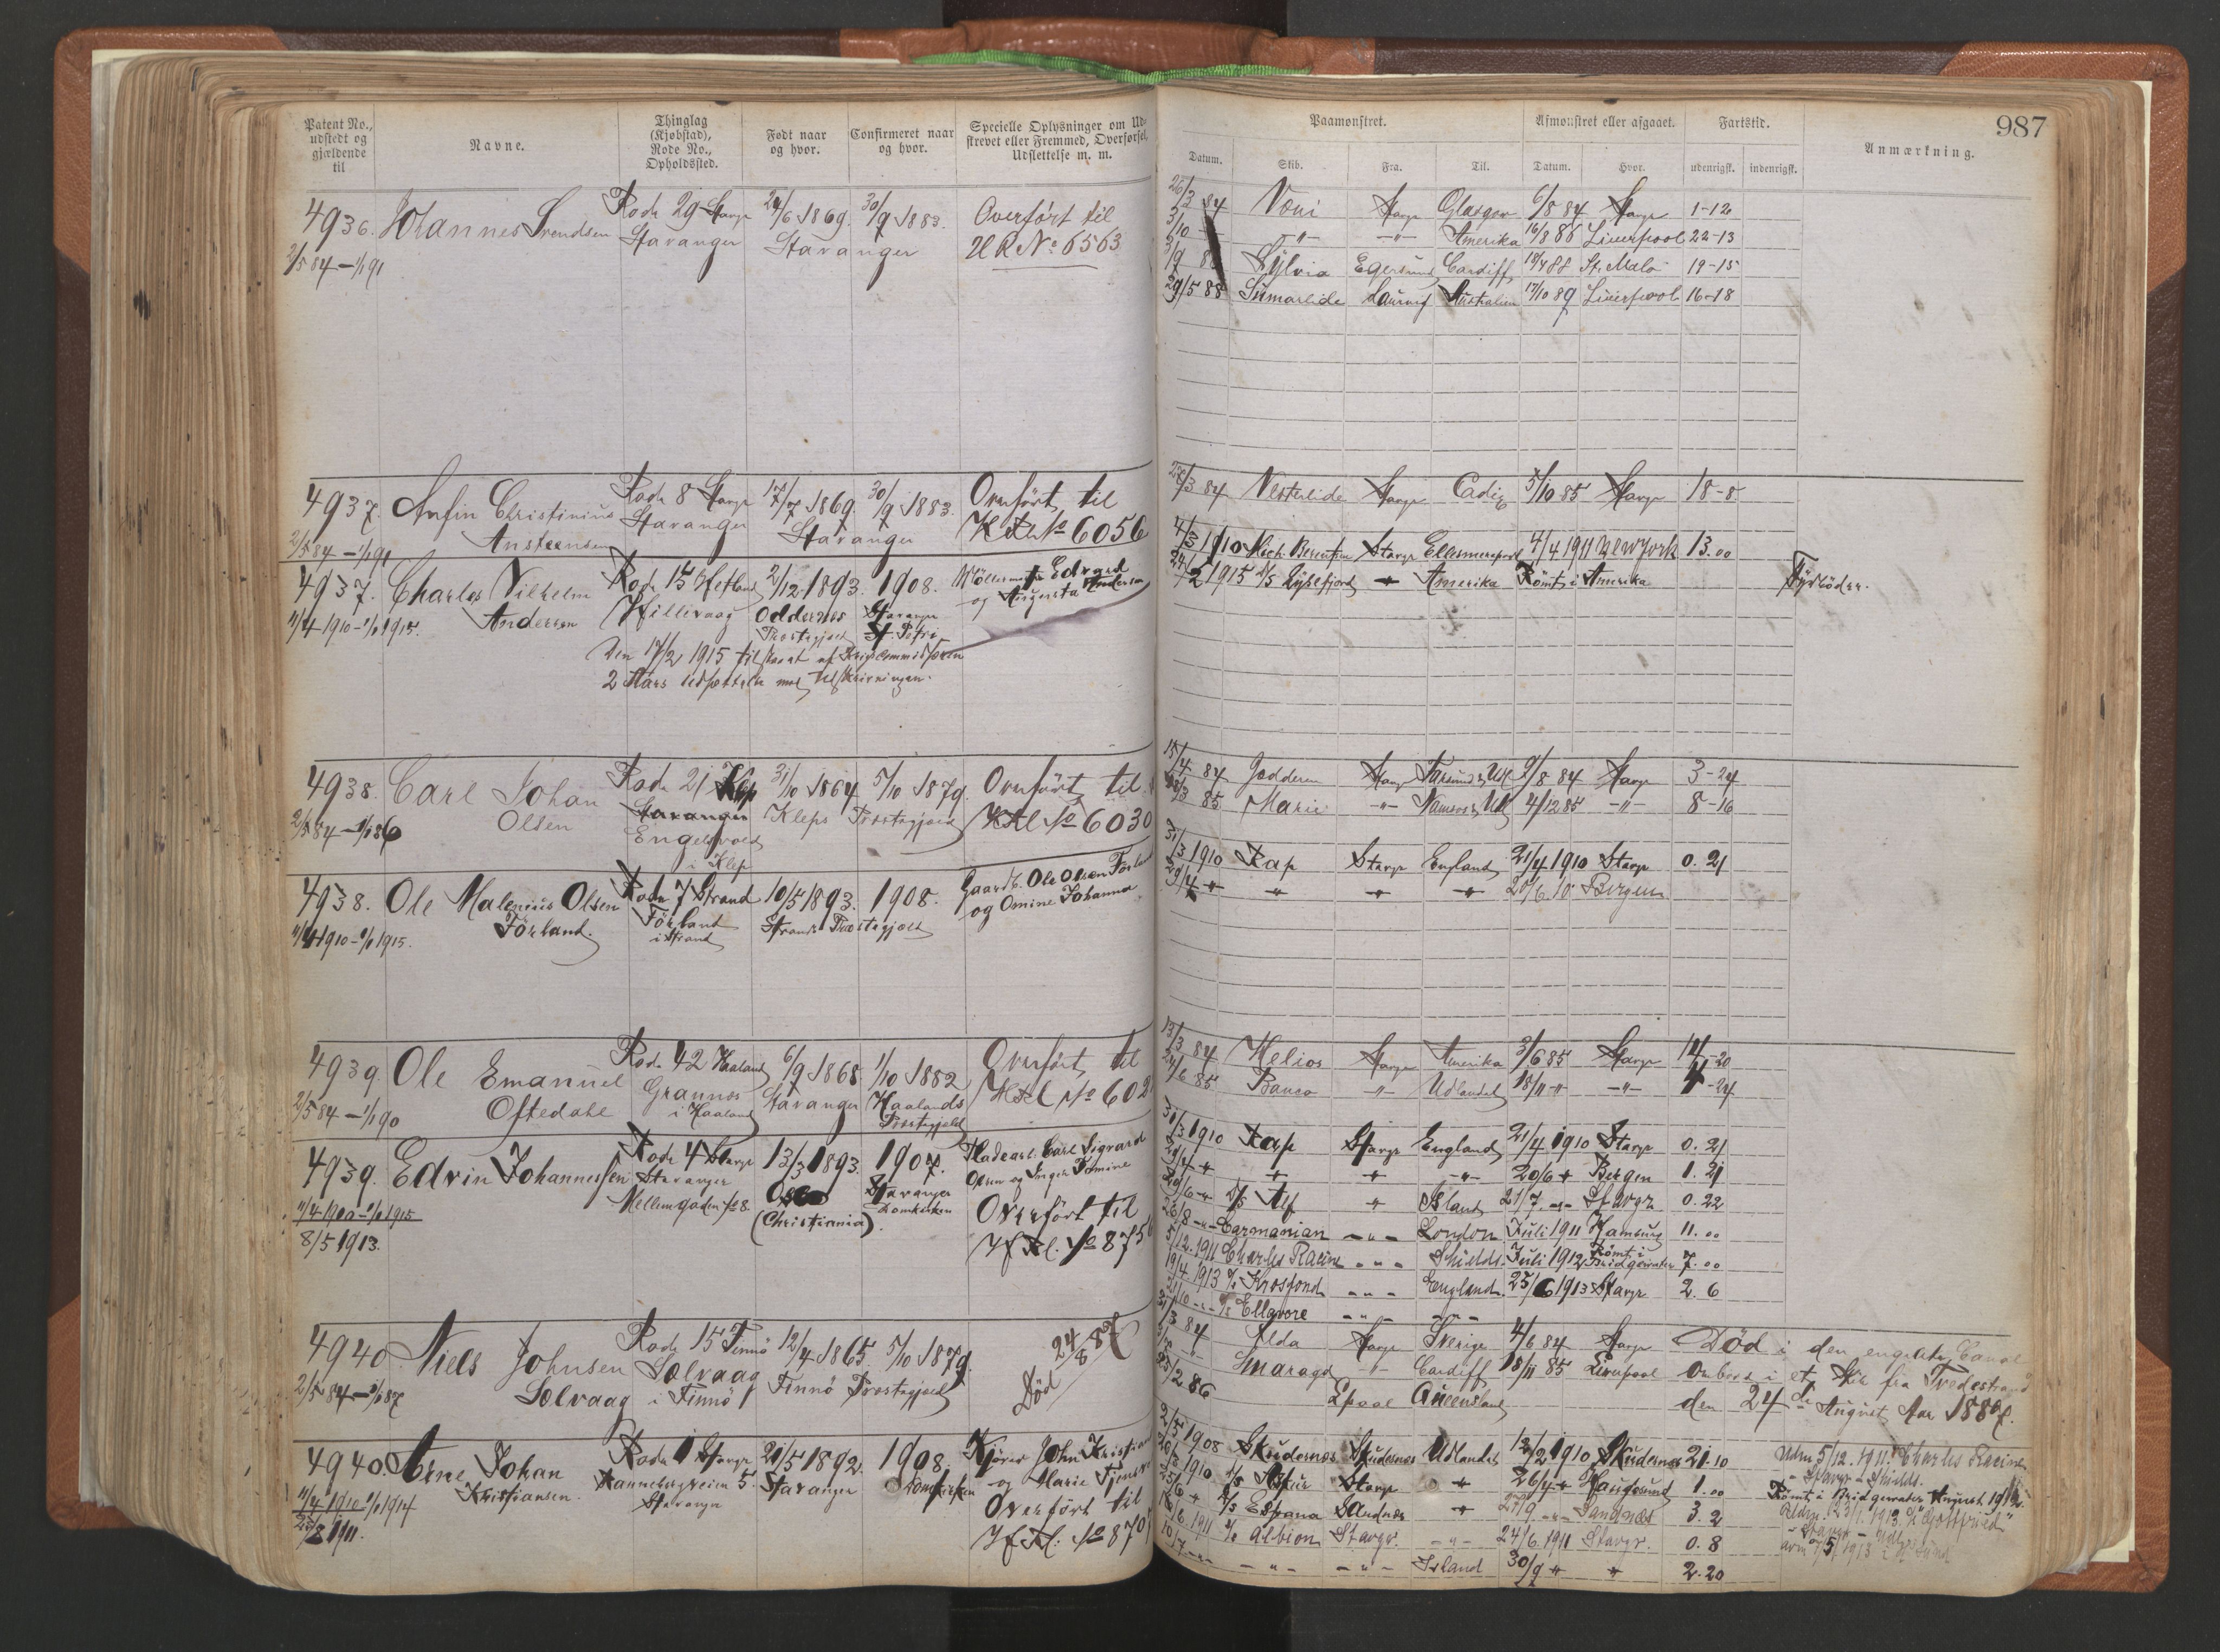 987
Patent No., udstedt og gjældende til
Navne.
Thinglag (Kjøbstad), Rode No., Opholdssted.
Født naar og hvor.
Confirmeret naar og hvor.
Specielle Oplysninger om Ud- strevet eller Fremmed, Overførsel, Udslettelse m. m.
Paamønstret.
Datum. Skib. Fra. Til.
Afmønstret eller afgaaet.
Datum. Hvor.
Fartstid.
udenrigsk. indenrigsk.
Anmærkning.
4936. Johannes Svendsen Rode 29 Stavgr 24/6 1869. 30/9 1883. Overført til
2/5 84 – 1/1 91 Stavanger Stavanger HR No 6563
26/3 84 Voni Stavgr Glasgow 6/8 84 Stavgr 1-12
3/10 –"– –"– Amerika 16/8 86 Liverpool 22-13
Sylvia Egersund Cardiff 18/4 88 St. Malo 19-15
29/5 88 Sumarlide Laurvig Australien 17/10 89 Liverpool 16-18
4937. Anfin Christinius Rode 8 Stavgr 17/7 1869. 30/9 1883. Overført til
2/5 84 – 1/1 91 Anstensen Stavanger Stavanger No 6056
3/84 Vesterlide Stavgr Cadiz 5/10 85 Stavgr 18-8
4937. Charles Vilhelm Rode 15 Hetland 2/12 1893. 1908. Edvard
11/4 1910 – 1/1 1915. Andersen Hillevaag Oddernes Stavanger og Augusta Andersen
Præstegjæld St. Petri
Den 17/2 1915 tilstaaet af Krigscommissæren
2 Aars Udsættelse med Udskrivningen.
4/3 1910 Mich. Berentsen Stavgr Ellesmereport 4/4 1911 New York 13.00
2 1915 D/S Lysefjord –"– Amerika Römt i Amerika Fyrbøder.
4938. Carl Johan Rode 21 Klep 31/10 1864. 5/10 1879. Overført til
2/5 84 – 1/1 86 Olsen Stavanger Kleps Præstegjæld No 6030
Engelsvold
i Klep
15/4 84 Jæderen Stavgr 9/8 84 Stavgr 3-24
85 Marie –"– 4/12 85 –"– 8-16
4938. Ole Malenius Olsen Rode 7 Strand 10/5 1893. 1908. Gaardb. Ole Olsen Förland
11/4 1910 – 1/1 1915. Förland. Förland Strands Præstegjæld og Omine Johanna
i Strand
31/3 1910 Kap Stavgr England 21/4 1910 Stavgr 0.21
29/4 –"– –"– –"– –"– 20/6.10 Bergen
4939. Ole Emanuel Rode 42 Haaland 6/9 1868 1/10 1882 Overført til
2/5 84 – 1/1 90 Oftedahl Grannes Stavanger Haalands
i Haaland Præstegjæld
13/3 84 Helios Stavgr Amerika 3/6 85 Stavgr 14-20
24/6 85 Banco –"– Udlandet 18/11 –"– –"– 4-24
4939. Edvin Johannessen Rode 4 Stavgr 13/3 1893. 1907. Pladearb. Carl Sigvard
11/4 1910 – 1/1 1915 Stavanger Oslo Stavanger Olsen og Inger Tomine
8/5 1913. Mellemgaden No 8. (Christiania). Domkirken Overført til
31/3 1910 Kap Stavgr England 21/4 1910 Stavgr 0.21
29/4 –"– –"– –"– –"– 20/6 –"– Bergen 1.21
20/6 –"– D/S Alf –"– Island 21/7 –"– Stavgr. 0.22
26/8 –"– Carmanian –"– London Juli 1911 Hamburg 11.00
5/12.1911 Charles Racine –"– Shields Juli 1912 Römt i Bridgewater 7.00
19/4.1913 Krosfond –"– England 25/6 1913 Stavgr 2.6
Ellgvore –"– –"–
4940. Niels Johnsen Rode 15 Finnø 12/4 1865. 5/10 1879. Død 24/8 87
2/5 84 – 1/1 87 Solvaag Solvaag Finnø Præstegjæld
i Finnø
84 Alda Stavgr Sverige 4/6 84 Stavgr Død i den engelske Canal
Smaragd –"– Cardiff 18/11 85 Liverpool ombord i et Skib fra Tvedestrand
2 86 Queensland den 24de August Aar 1887.
4940. Arne Johan Rode 1 Stavgr 21/5 1892. 1908. Kjører John Kristian
11/4 1910 – 1/1 1914 Kristiansen. Kannebergveien 5. Stavanger Domkirken og Marie
1911. Stavanger Overført til
2/5 1908 Skudesnes Skudesnes Udlandet 12/2 1910 Skudesnes 21.10 5/12.1911. Charles Racine
1910 D/S Stavgr –"– 26/4 –"– Haugesund 1.00 Stavgr – Shields.
D/S Espana Sandnes –"– 27/9 –"– Sandnes 3.2 Römt i Bridgewater August 1912
6.1911 Albion Stavgr. –"– 24/6.1911 Stavgr. 0.8 1913 "Gottfried"
10/7 –"– –"– –"– Island 30/9 –"– –"– 2.20